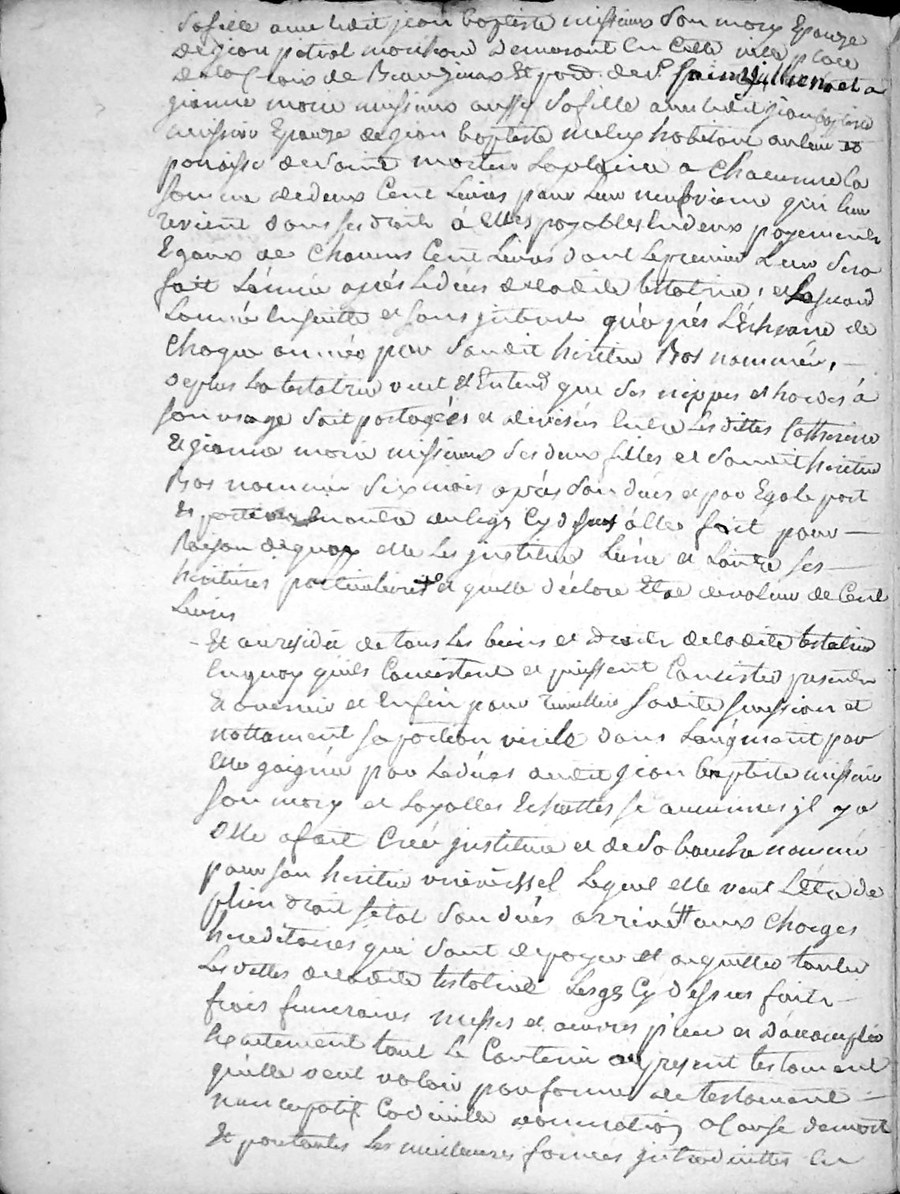 Sa fille avec ledit jean baptiste missieux son mary Epouze
de jean patral demeurant En Cette ville place
de la Croix de Beauzieux Et par. de St Jullien et a
jeanne marie missieux aussy sa fille avec ledit jean baptiste
missieux Epouze de jean baptiste habitant au lieu et
paroisse de Saint martin La plaine a Chacune la
somme de deux Cent Livres pour leur qui leur
revient dans ses droits a Elles payables En deux payements
Egaux de Chacun Cent Livres dont Le premier Leur sera
fait L'année après Le décès de ladite testatrice, et Le second
L'année Ensuitte et sans jnterest qu'après L'Echeance de
Chaque année par Sondit heritier Bas nommé, —
de plus La testatrice veut Et Entend que Ses nippes et hardes à
son usage Soit partagées et divisées Entre Lesdittes Catherine
Et jeanne marie missieux Ses deux filles et Sondit heritier
Bas nommé Six mois après Son décès et par Egale part
Et portion du legs Cy dessus a Elles fait pour —
Raison de quoy elle Les jnstitue Lune et Lautre Ses —
heritieres particulieres Et quelle déclare Etre de valeur de Cent
Livres
- Et au residu de tous Les biens et droits de ladite testatrice
En quoy quils Concistent et puissent Concister presents
Et avenir et Enfin pour recueillir Sadite succession et
nottament sa portion virille dans L'augment par
Elle gaigné par Le décès dudit jean baptiste missieux
Son mary et Loyalles Echeuttes si aucunnes jl y a
Elle a fait Créé jnstitué et de Sa bouche nommé
pour son heritier univerссel Lequel elle veut L'être de
plein droit sitot Son décès arrivé aux Charges
hereditaires qui Sont de payer Et acquitter toutes
Les dettes de ladite testatrice Legs Cy dessus faits —
frais funeraires messes et œuvres pies et d'accomplir
Exactement tout Le Contenu au present testament
qu'elle veut valoir par forme de testament —
nuncupatif Codicille donnation a Cause de mort
Et par toutes Les meilleures formes jntroduittes En